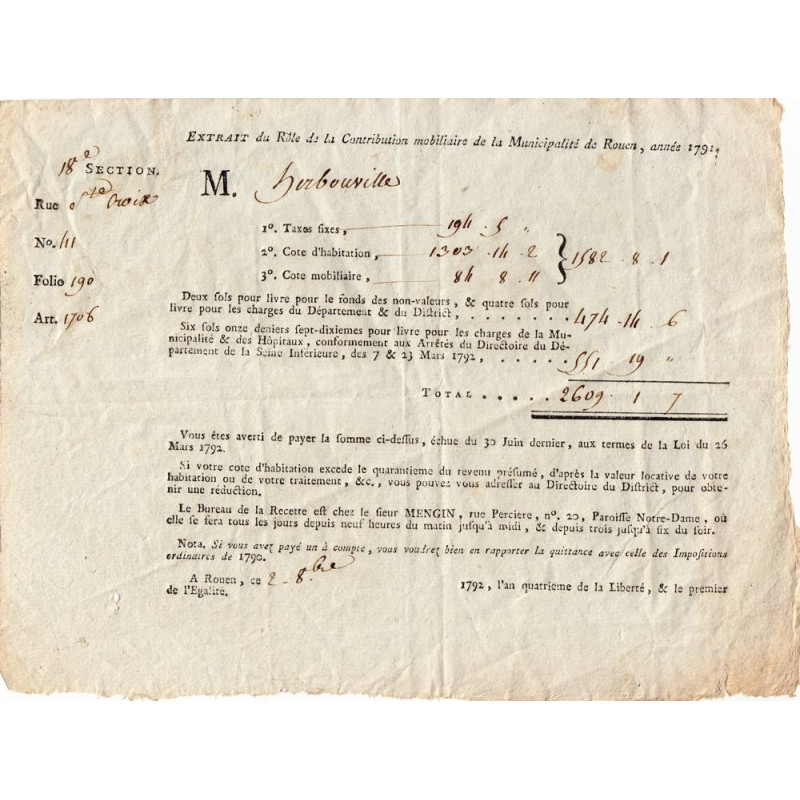 EXTRAIT du Rôle de la Contribution mobiliaire de la Municipalité de Rouen, année 1791.
18e SECTION.
Rue Ste Croix
No. 41
Folio 190
Art. 1706
M. herbouville
1o. Taxes fixes, 194 . 5 "
2o. Cote d'habitation, 1303 . 14 . 2
3o. Cote mobiliaire, 84 8 11
} 1582 . 8 . 1
Deux sols pour livre pour le fonds des non-valeurs, & quatre sols pour
livre pour les charges du Département & du District, . . . . . . . 474 . 14 . 6
Six sols onze deniers sept-dixiemes pour livre pour les charges de la Mu-
nicipalité & des Hôpitaux, conformement aux Arrêtés du Directoire du Dé-
partement de la Seine Intérieure, des 7 & 23 Mars 1792, . . . . . . 551 . 19 "
TOTAL . . . . . 2609 . 1 7
Vous êtes averti de payer la somme ci-dessus, échue du 30 Juin dernier, aux termes de la Loi du 26
Mars 1792.
Si votre cote d'habitation excede le quarantieme du revenu présumé, d'après la valeur locative de votre
habitation ou de votre traitement, &c., vous pouvez vous adresser au Directoire du District, pour obte-
nir une réduction.
Le Bureau de la Recette est chez le sieur MENGIN, rue Perciere, no. 20, Paroisse Notre-Dame, où
elle se fera tous les jours depuis neuf heures du matin jusqu'à midi, & depuis trois jusqu'à six du soir.
Nota. Si vous avez payé un à compte, vous voudrez bien en rapporter la quittance avec celle des Impositions
ordinaires de 1790.
A Rouen, ce 2 8.bre 1792, l'an quatrieme de la Liberté, & le premier
de l'Egalité.